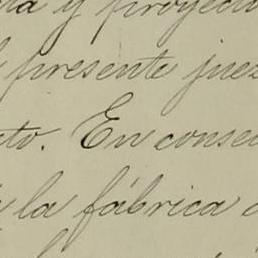 y proyect
presente juez
to. En conse
la fábrica